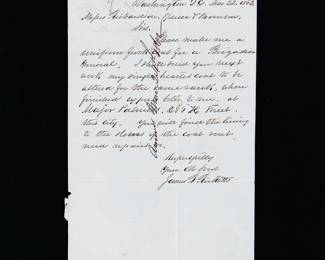 Washington D.C. Nov 22, 1862
Messrs Richardson Spence & Thomson
Sirs.
Please make me a
uniform frock coat for a Brigadier
General. I shall send you next
week my single breasted coat to be
altered for the same rank, when
finished express both to me, at
Major Palmer's, 288 H Street.
this city. You will find the lining
to the sleeves of the coat sent,
need repairs.
Respectfully
Your Obt Servt
James B. Ricketts